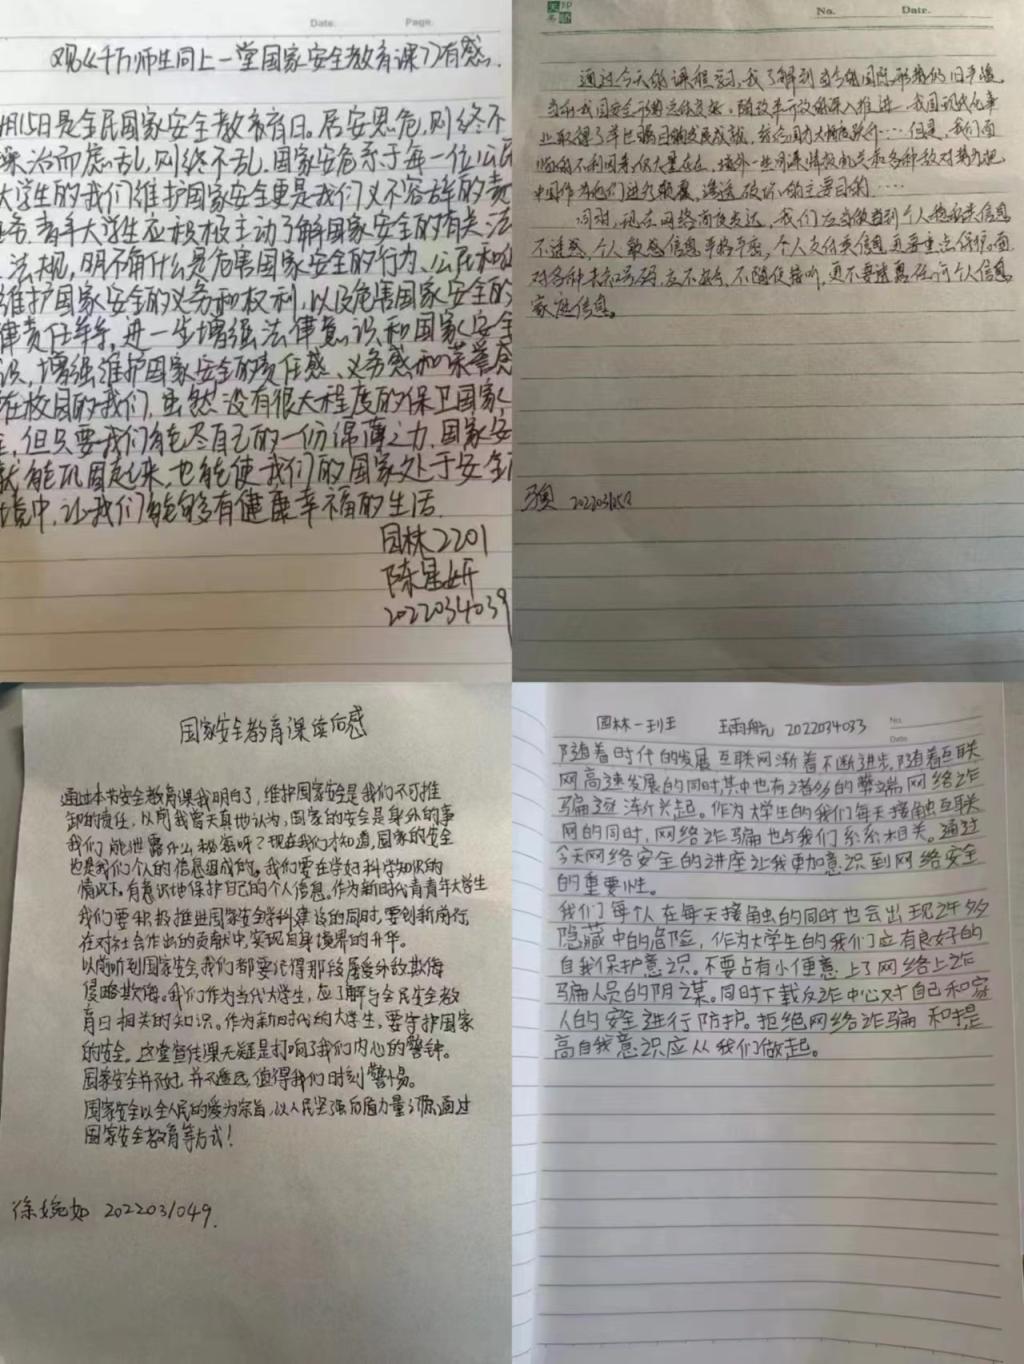 Date. Page.
观《千万师生同上一堂国家安全教育课》有感.
月15日是全民国家安全教育日。居安思危,则终不
治而虑乱,则终不乱.国家安危系于每一位公民
大学生的我们维护国家安全更是我们义不容辞的责
务.青年大学生应积极主动了解国家安全的有关法
法规,明确什么是危害国家安全的行为、公民和
维护国家安全的义务和权利,以及危害国家安全的
律责任等,进一步增强法律意识和国家安全
识,增强维护国家安全的责任感、义务感和荣誉感
在校园的我们,虽然没有很大程度的保卫国家
但只要我们能尽自己的一份绵薄之力,国家安
就能巩固起来,也能使我们的国家处于安全
境中,让我们能够有健康幸福的生活.
园林2201
陈星妍
2022034039
No. Date.
通过今天的课程学习,我了解到当今的国际形势仍旧严峻,
当前我国安全形势总体良好,随改革开放的深入推进,我国现代化事
业取得了举世瞩目的发展成就,综合国力大幅度跃升……但是,我们面
临的不利因素仍大量存在,境外一些间谍情报机关和各种敌对势力把
中国作为他们进行颠覆、渗透、破坏的主要目的……
同时,现在网络高度发达,我们应当做到个人隐私类信息
不透露,个人敏感信息严格保密,个人支付类信息更要重点保护。面
对各种未知号码,应不轻信,不随便接听,更不要透露任何个人信息,
家庭信息。
国家安全教育课读后感
通过本节安全教育课我明白了,维护国家安全是我们不可推
卸的责任。以前我曾天真地认为,国家的安全是身外的事
我们能泄露什么秘密呀?现在我们才知道,国家的安全
也是我们个人的信息组成的。我们要在学好科学知识的
情况下。有意识地保护自己的个人信息。作为新时代青青年大学生
我们要积极推进国家安全学科建设的同时,要创新前行,
在对社会作出的贡献中,实现自身境界的升华。
以前听到国家安全,我们都要记得那段屡受外敌欺侮
侵略欺侮。我们作为当代大学生,应了解与全民安全教
育日相关的知识。作为新时代的大学生,要守护国家
的安全。这堂宣传课无疑是打响了我们内心的警钟。
国家安全并不遥远,值得我们时刻警惕。
国家安全以全人民的爱为宗旨,以人民坚强后盾力量之源通过
国家安全教育等方式!
徐婉如 2022031049.
园林一班 王雨航 2022034033 No.
Date
随着时代的发展互联网渐着不断进步,随着互联
网高速发展的同时,其中也有诸多的弊端,网络诈
骗逐渐兴起。作为大学生的我们每天接触互联
网的同时,网络诈骗也与我们系系相关。通过
今天网络安全的讲座让我更加意识到网络安全
的重要性。
我们每个人在每天接触的同时也会出现许多
隐藏中的危险,作为大学生的我们应有良好的
自我保护意识。不要占有小便意上了网络上诈
骗人员的阴谋。同时下载反诈中心对自己和家
人的安全进行防护。拒绝网络诈骗和提
高自我意识应从我们做起。